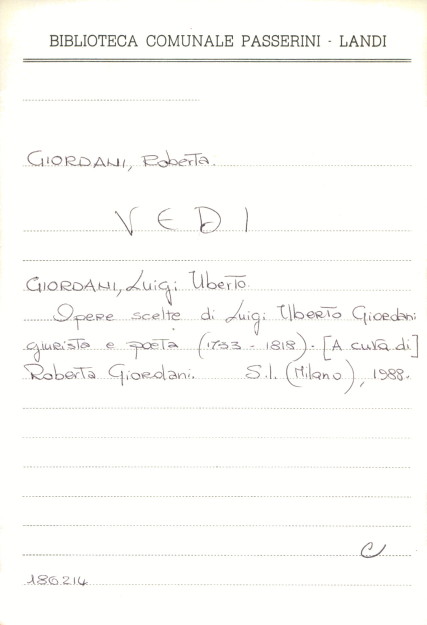 BIBLIOTECA COMUNALE PASSERINI - LANDI
GIORDANI, Roberta.
VEDI
GIORDANI, Luigi Uberto
Opere scelte di Luigi Uberto Giordani
giurista e poeta (1753 - 1818). - [A cura di]
Roberta Giordani. S.l. (Milano), 1988.
C
186214